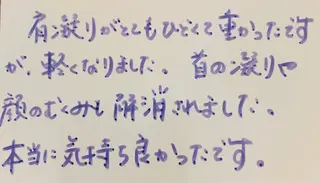 肩凝りがとてもひどくて重かったです
が、軽くなりました。首の凝りや
顔のむくみも解消されました。
本当に気持ち良かったです。